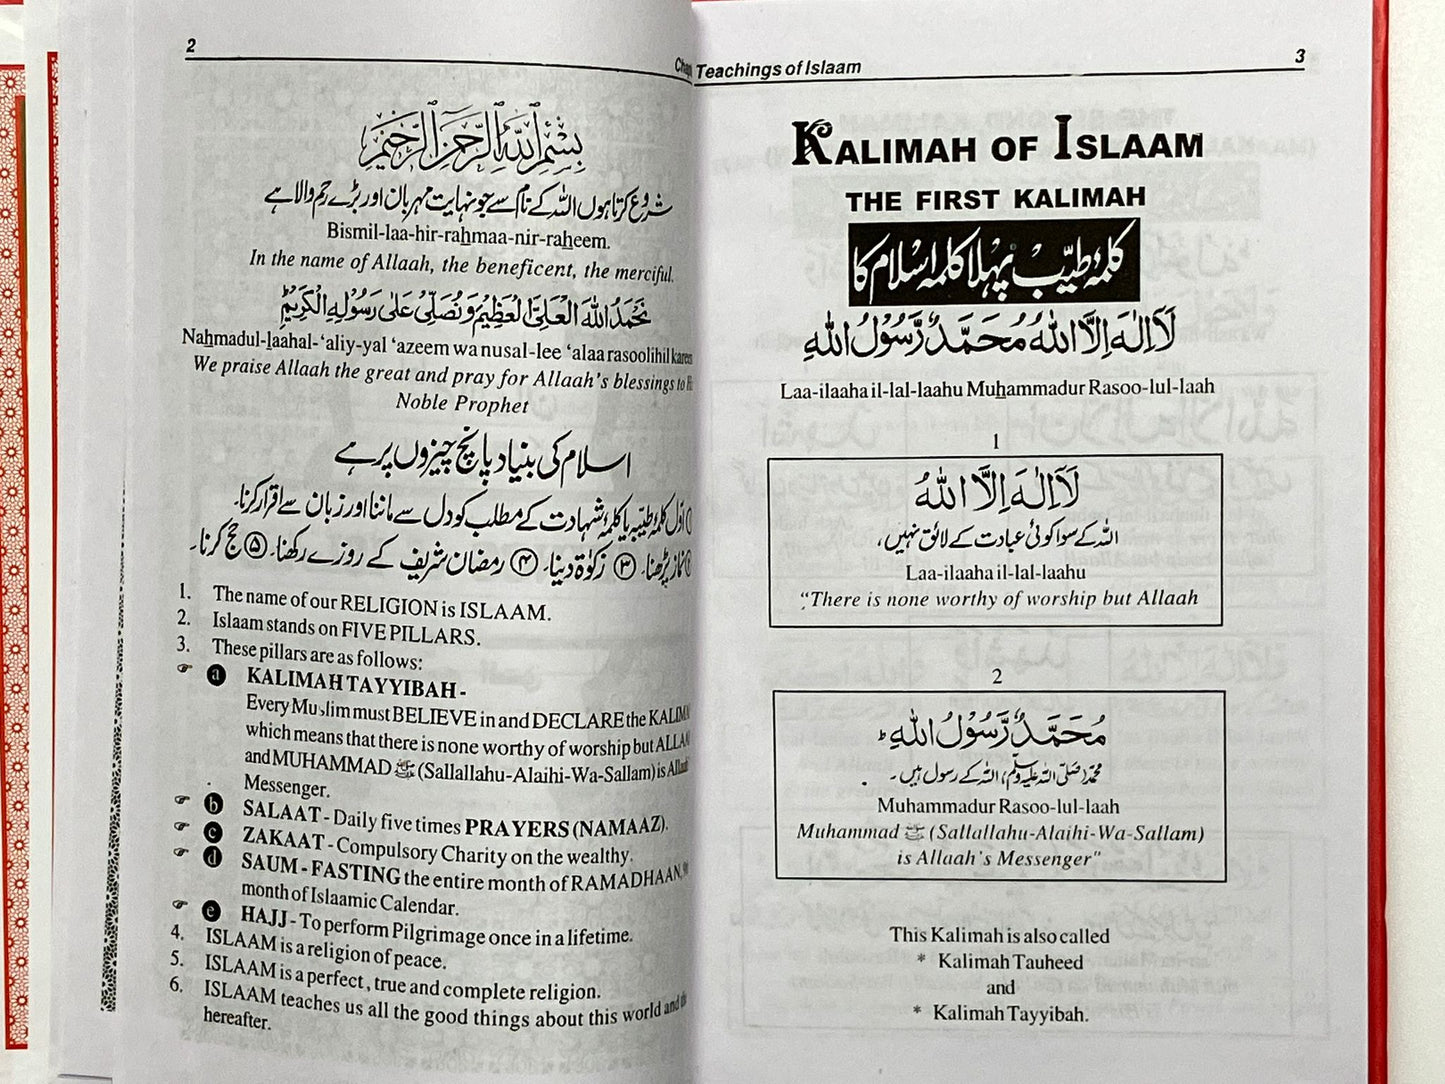 2
بِسْمِ اللهِ الرَّحْمٰنِ الرَّحِيْمِ
شروع کرتا ہوں اللہ کے نام سے جو نہایت مہربان اور بڑے رحم والا ہے
Bismil-laa-hir-rahmaa-nir-raheem.
In the name of Allaah, the beneficent, the merciful.
نَحْمَدُ اللهَ الْعَلِيَّ الْعَظِيْمَ وَنُصَلِّيْ عَلٰى رَسُوْلِهِ الْكَرِيْمِ
Nahmadul-laahal-‘aliy-yal ‘azeem wa nusal-lee ‘alaa rasoolihil kareem
We praise Allaah the great and pray for Allaah’s blessings to
Noble Prophet
اسلام کی بنیاد پانچ چیزوں پر ہے
اوّل کلمۂ طیّبہ یا کلمۂ شہادت کے مطلب کو دل سے ماننا اور زبان سے اقرار کرنا۔
نماز پڑھنا۔ ③ زکوٰۃ دینا۔ ④ رمضان شریف کے روزے رکھنا۔ ⑤ حج کرنا۔
1. The name of our RELIGION is ISLAAM.
2. Islaam stands on FIVE PILLARS.
3. These pillars are as follows:
☞ a KALIMAH TAYYIBAH -
Every Muslim must BELIEVE in and DECLARE the
which means that there is none worthy of worship but
and MUHAMMAD ﷺ (Sallallahu-Alaihi-Wa-Sallam) is
Messenger.
☞ b SALAAT - Daily five times PRAYERS (NAMAAZ).
☞ c ZAKAAT - Compulsory Charity on the wealthy.
☞ d SAUM - FASTING the entire month of RAMADHAAN,
month of Islaamic Calendar.
☞ e HAJJ - To perform Pilgrimage once in a lifetime.
4. ISLAAM is a religion of peace.
5. ISLAAM is a perfect, true and complete religion.
6. ISLAAM teaches us all the good things about this world and the
hereafter.
Teachings of Islaam 3
KALIMAH OF ISLAAM
THE FIRST KALIMAH
کلمۂ طیّب پہلا کلمہ اسلام کا
لَآ اِلٰهَ اِلَّا اللهُ مُحَمَّدٌ رَّسُوْلُ اللهِ
Laa-ilaaha il-lal-laahu Muhammadur Rasoo-lul-laah
1
لَآ اِلٰهَ اِلَّا اللهُ
اللہ کے سوا کوئی عبادت کے لائق نہیں،
Laa-ilaaha il-lal-laahu
“There is none worthy of worship but Allaah
2
مُحَمَّدٌ رَّسُوْلُ اللهِ ط
محمد (صلی اللہ علیہ وسلم) اللہ کے رسول ہیں۔
Muhammadur Rasoo-lul-laah
Muhammad ﷺ (Sallallahu-Alaihi-Wa-Sallam)
is Allaah's Messenger"
This Kalimah is also called
* Kalimah Tauheed
and
* Kalimah Tayyibah.